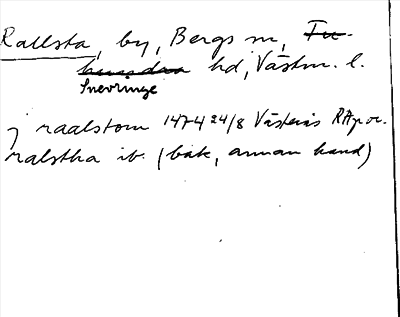 Rallsta, by, Bergs sn, Tu-
hundra hd, Västm. l.
Snevringe
j raalstom 1474 24/8 Västerås RAp or.
ralstha ib. (bak, annan hand)